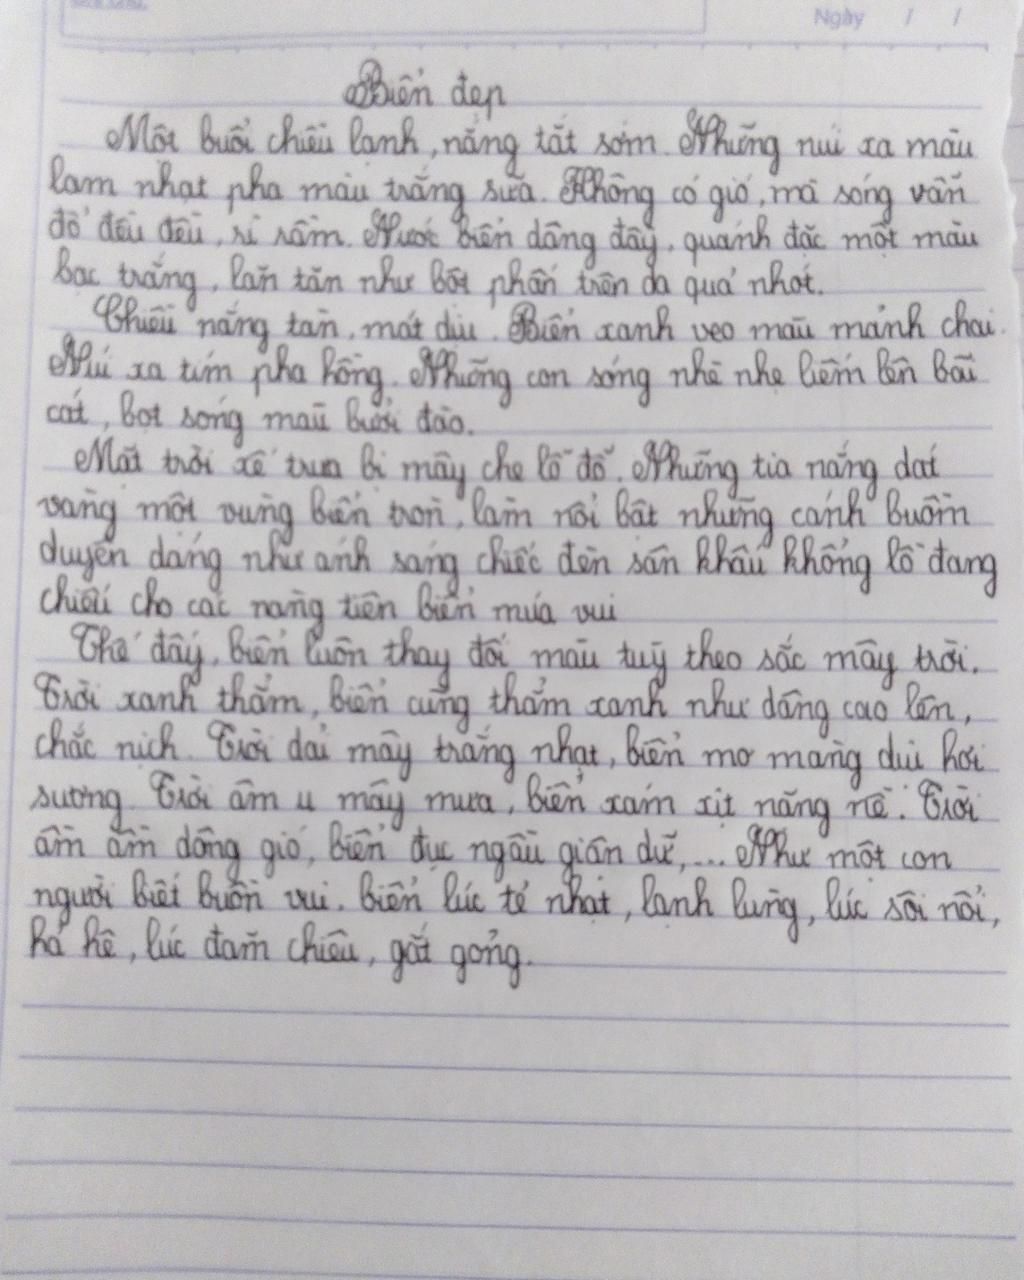 Ngày / /
Biển đẹp
Một buổi chiều lạnh, nắng tắt sớm. Những núi xa màu
lam nhạt pha màu trắng sữa. Không có gió, mà sóng vẫn
đổ đều đều, rì rầm. Nước biển dâng đầy, quánh đặc một màu
bạc trắng, lăn tăn như bột phấn trên da quả nhót.
Chiều nắng tàn, mát dịu. Biển xanh veo màu mảnh chai.
Núi xa tím pha hồng. Những con sóng nhè nhẹ liếm lên bãi
cát, bọt sóng màu bưởi đào.
Mặt trời xế trưa bị mây che lỗ đỗ. Những tia nắng dát
vàng một vùng biển tròn, làm nổi bật những cánh buồm
duyên dáng như ánh sáng chiếc đèn sân khấu khổng lồ đang
chiếu cho các nàng tiên biển múa vui
Thế đấy, biển luôn thay đổi màu tuỳ theo sắc mây trời.
Trời xanh thẳm, biển cũng thẳm xanh như dâng cao lên,
chắc nịch. Trời dải mây trắng nhạt, biển mơ màng dịu hơi
sương. Trời âm u mây mưa, biển xám xịt nặng nề. Trời
ầm ầm dông gió, biển đục ngầu giận dữ,... Như một con
người biết buồn vui. biển lúc tẻ nhạt, lạnh lùng, lúc sôi nổi,
hả hê, lúc đăm chiêu, gắt gỏng.